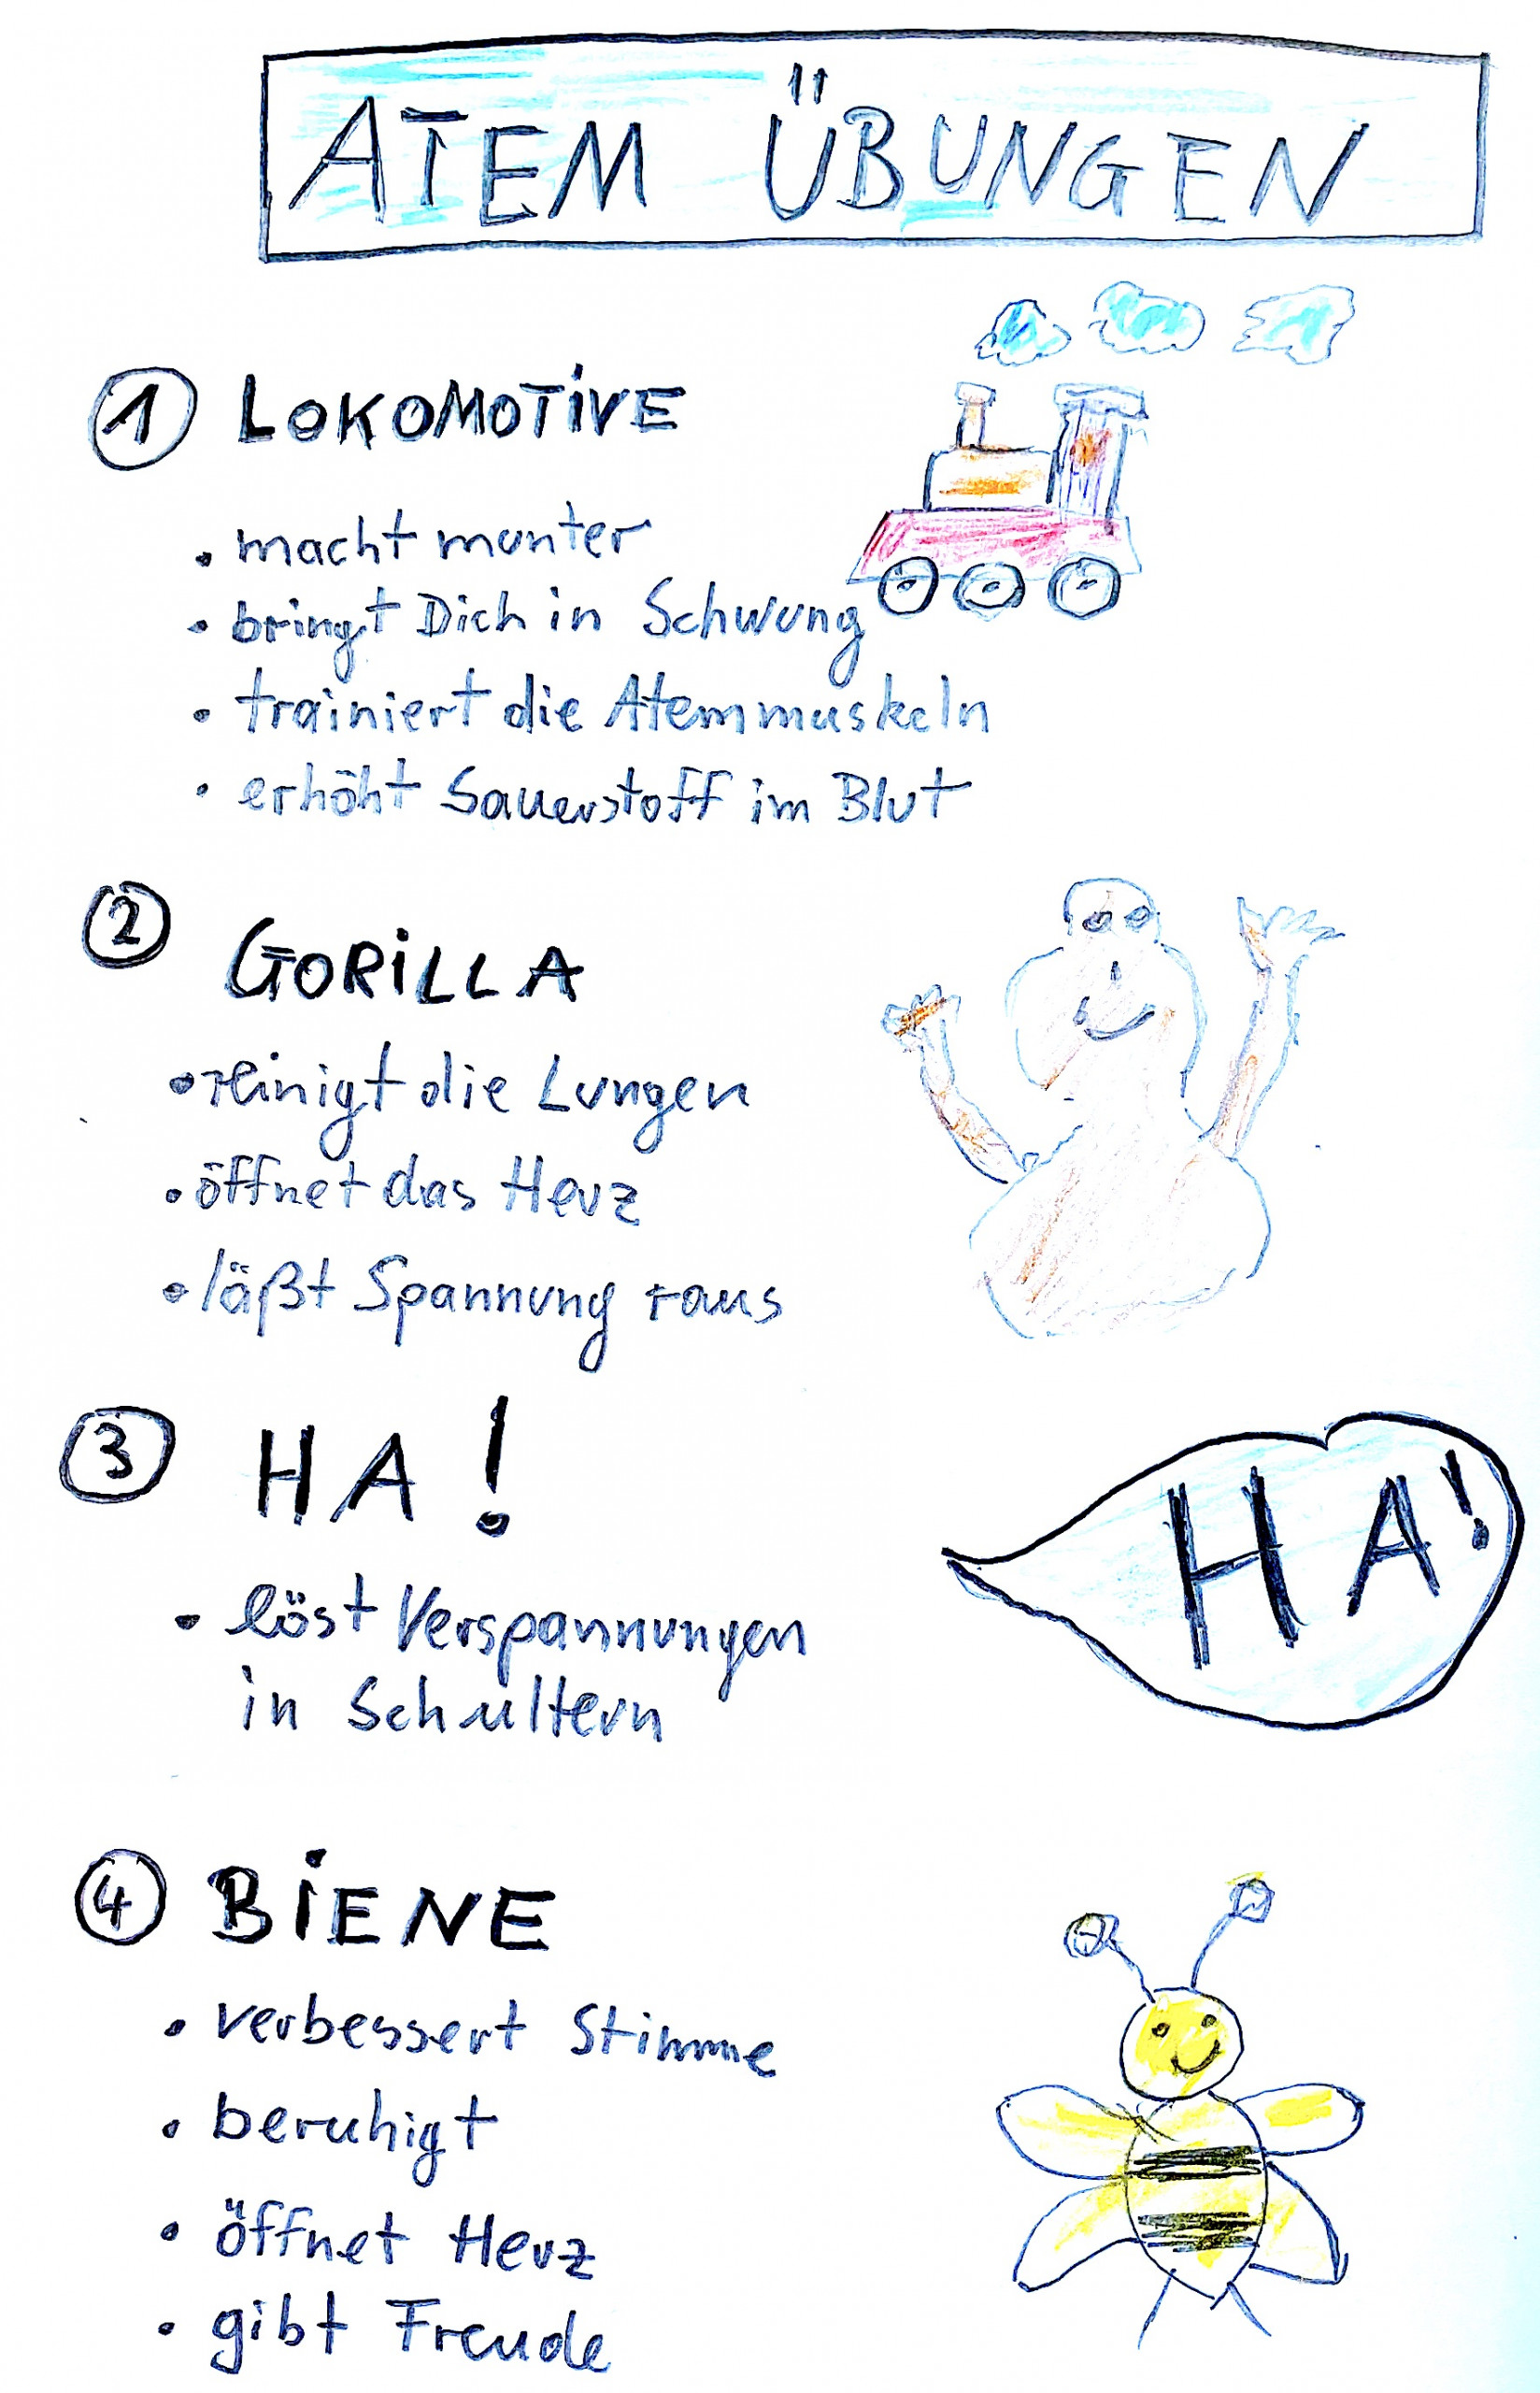 ATEM ÜBUNGEN
1 LOKOMOTIVE
• macht munter
• bringt Dich in Schwung
• trainiert die Atemmuskeln
• erhöht Sauerstoff im Blut
2 GORILLA
• reinigt die Lungen
• öffnet das Herz
• läßt Spannung raus
3 HA!
HA!
• löst Verspannungen
in Schultern
4 BIENE
• verbessert Stimme
• beruhigt
• öffnet Herz
• gibt Freude